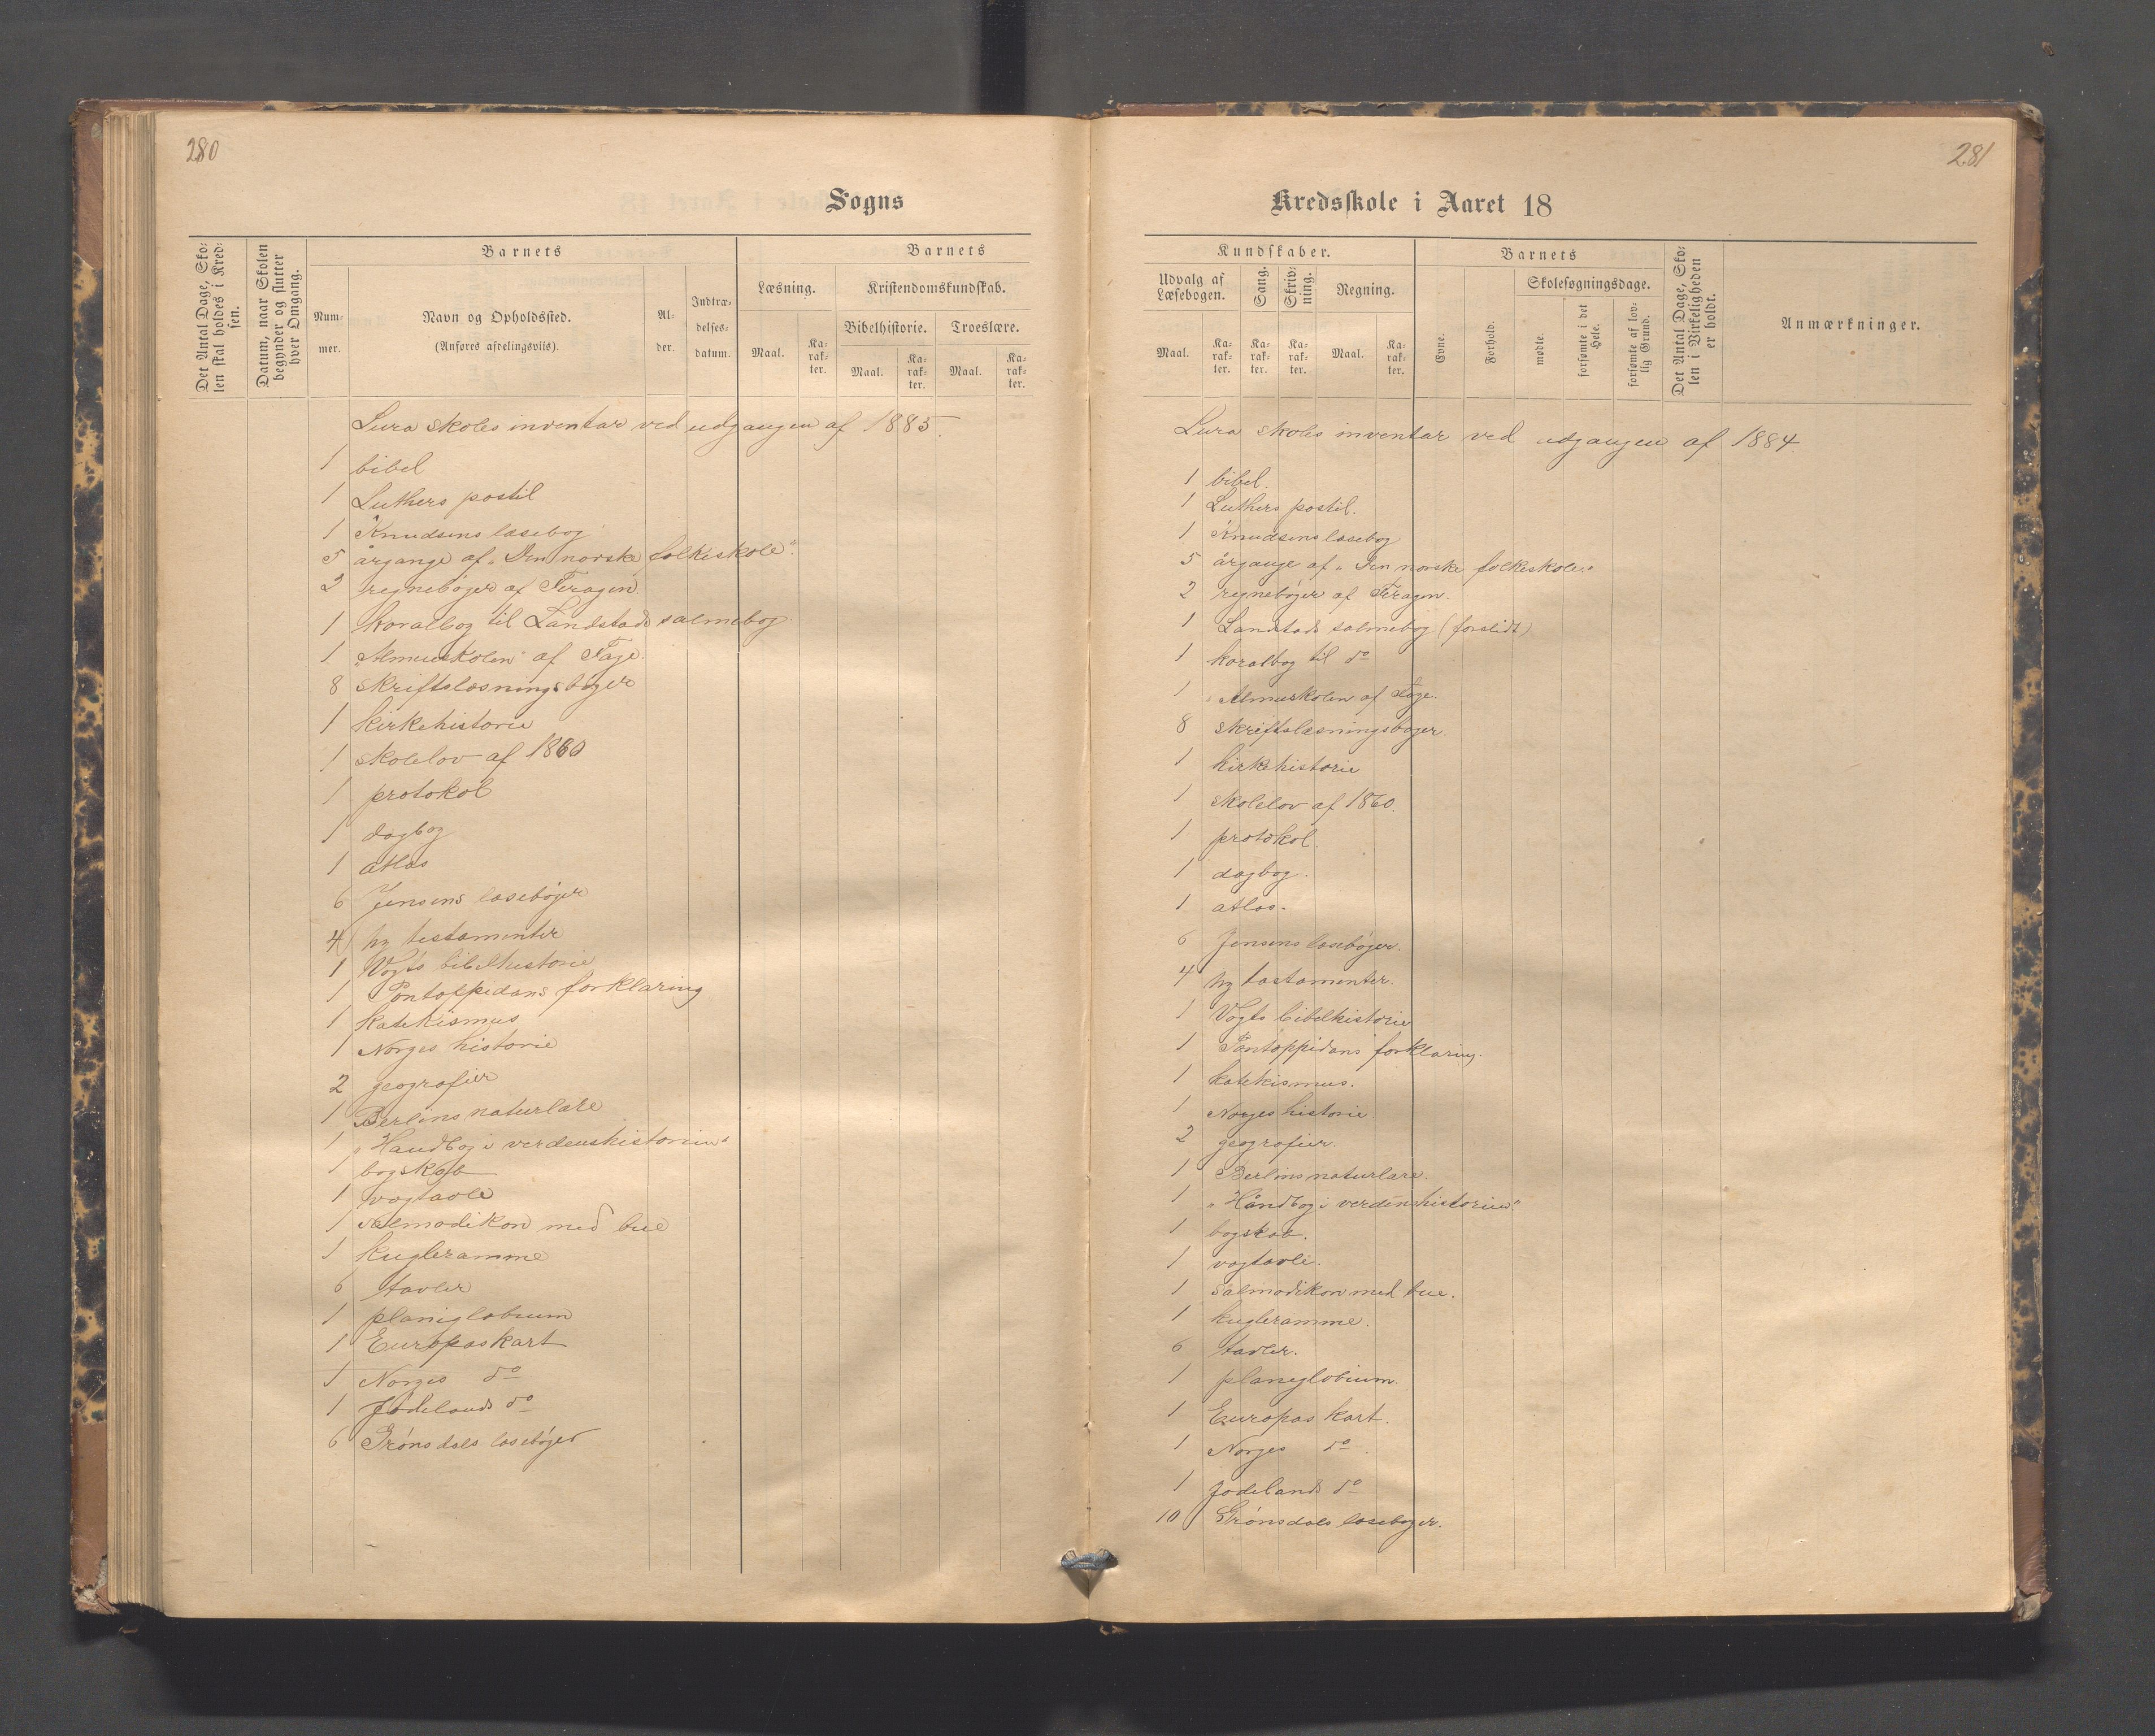 280
Sogns
Det Antal Dage, Sko-
len skal holdes i Kred-
sen.
Datum, naar Skolen
begynder og slutter
hver Omgang.
Barnets
Num-
mer.
Navn og Opholdssted.
(Anføres afdelingsviis).
Al-
der.
Indtræ-
delses-
datum.
Barnets
Læsning.
Kristendomskundskab.
Bibelhistorie.
Troeslære.
Maal.
Ka-
rak-
ter.
Maal.
Ka-
rak-
ter.
Maal.
Ka-
rak-
ter.
Lura skoles inventar ved udgangen af 1885.
1 bibel
1 Luthers postil
1 Knudsens læsebog
5 årgange af „Den norske folkeskole“.
2 regnebøger af Feragen.
1 koralbog til Landstads salmebog
1 „Almueskolen“ af Faye.
8 skriftslæsningsbøger
1 kirkehistorie
1 skolelov af 1860
1 protokol
1 dagbog
1 atlas
6 Jensens læsebøger
4 ny testamenter
1 Vogts bibelhistorie
1 Pontoppidans forklaring
1 katekismus
1 Norges historie
2 geografier
1 Berlins naturlære
1 „Haandbog i verdenshistorien“
1 bogskab
1 vægtavle
1 salmodikon med bue
1 kugleramme
6 tavler
1 planiglobium
1 Europas kart
1 Norges do
1 Jødelands do
6 Grønsdals læsebøger
281
Kredsskole i Aaret 18
Kundskaber.
Udvalg af
Læsebogen.
Sang.
Skriv-
ning.
Regning.
Maal.
Ka-
rak-
ter.
Ka-
rak-
ter.
Ka-
rak-
ter.
Maal.
Ka-
rak-
ter.
Barnets
Evne.
Forhold.
Skolesøgningsdage.
mødte.
forsømte i det
Hele.
forsømte af lov-
lig Grund.
Det Antal Dage, Sko-
len i Virkeligheden
er holdt.
Anmærkninger.
Lura skoles inventar ved udgangen af 1884.
1 bibel.
1 Luthers postil.
1 Knudsens læsebog
5 årgange af „Den norske folkeskole.“
2 regnebøger af Feragen.
1 Landstads salmebog (forslidt)
1 koralbog til do
1 Almueskolen af Faye.
8 skriftslæsningsbøger.
1 kirkehistorie
1 skolelov af 1860.
1 protokol.
1 dagbog.
1 atlas.
6 Jensens læsebøger.
4 ny testamenter.
1 Vogts bibelhistorie
1 Pontoppidans forklaring.
1 katekismus.
1 Norges historie
2 geografier.
1 Berlins naturlære.
1 „Håndbog i verdenshistorien“.
1 bogskab.
1 vægtavle.
1 salmodikon med bue.
1 kugleramme.
6 tavler.
1 planiglobium.
1 Europas kart.
1 Norges do.
1 Jødelands do
10 Grønsdals læsebøger.